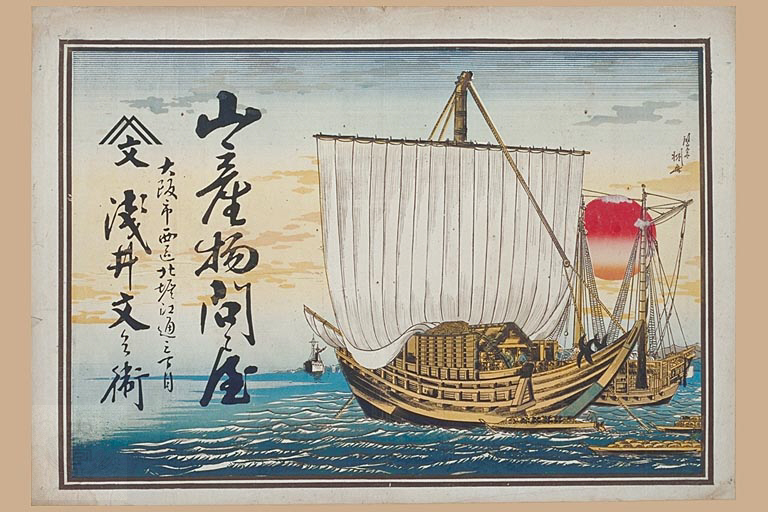 山産物問屋
大阪市西区北堀江通三丁目
文
浅井文兵衛